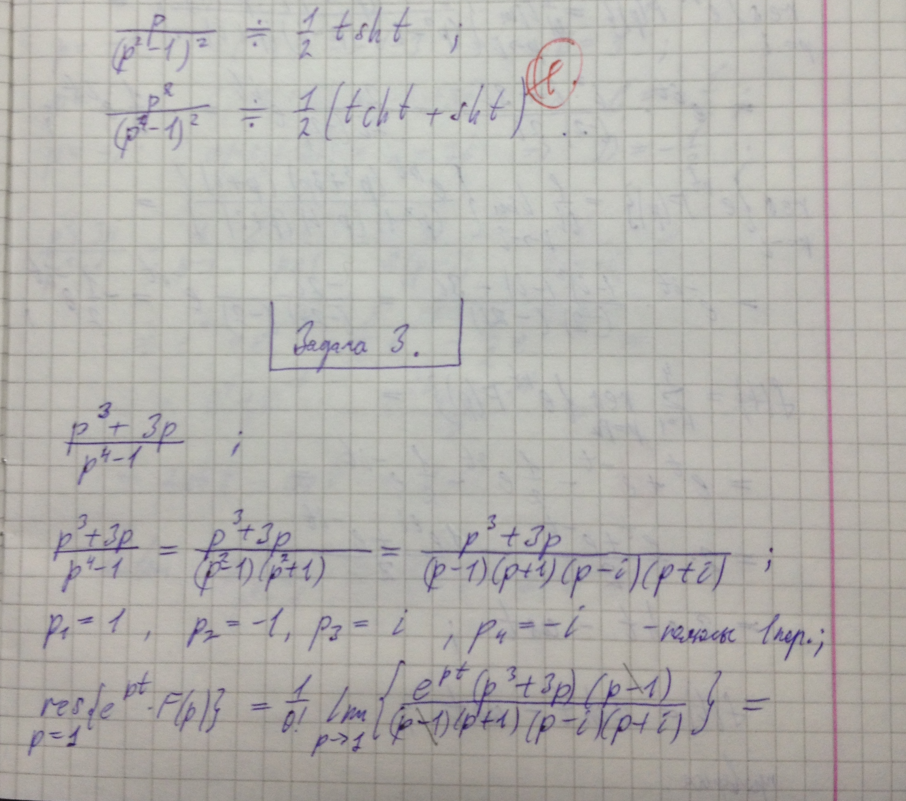 p/(p²-1)² ÷ 1/2 t sh t ;
p²/(p²-1)² ÷ 1/2 (t ch t + sh t)
Задача 3.
(p³ + 3p)/(p⁴-1) ;
(p³+3p)/(p⁴-1) = (p³+3p)/((p²-1)(p²+1)) = (p³+3p)/((p-1)(p+1)(p-i)(p+i)) ;
p₁ = 1 , p₂ = -1, p₃ = i , p₄ = -i - полюсы 1 пор.;
res_{p=1} {e^{pt}·F(p)} = 1/0! lim_{p→1} { e^{pt}(p³+3p)(p-1)/((p-1)(p+1)(p-i)(p+i)) } =